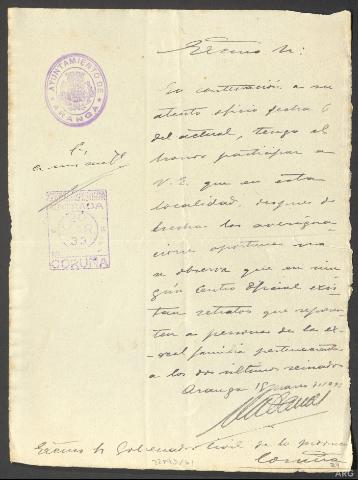 AYUNTAMIENTO DE
ARANGA
Excmo Sr:
En contestación a su
atento oficio fecha 6
del actual, tengo el
honor participar a
V.E. que en esta
localidad, despues de
hechas las averigua-
ciones oportunas no
se observa que en nin-
gún Centro Oficial exis-
tan retratos que represen-
ten a personas de la ex-
real familia pertenecientes
a los dos ultimos reinados
Aranga 18 marzo de
ENTRADA
33
CORUÑA
Excmo Sr Gobernador Civil de la provincia
Coruña
ARG